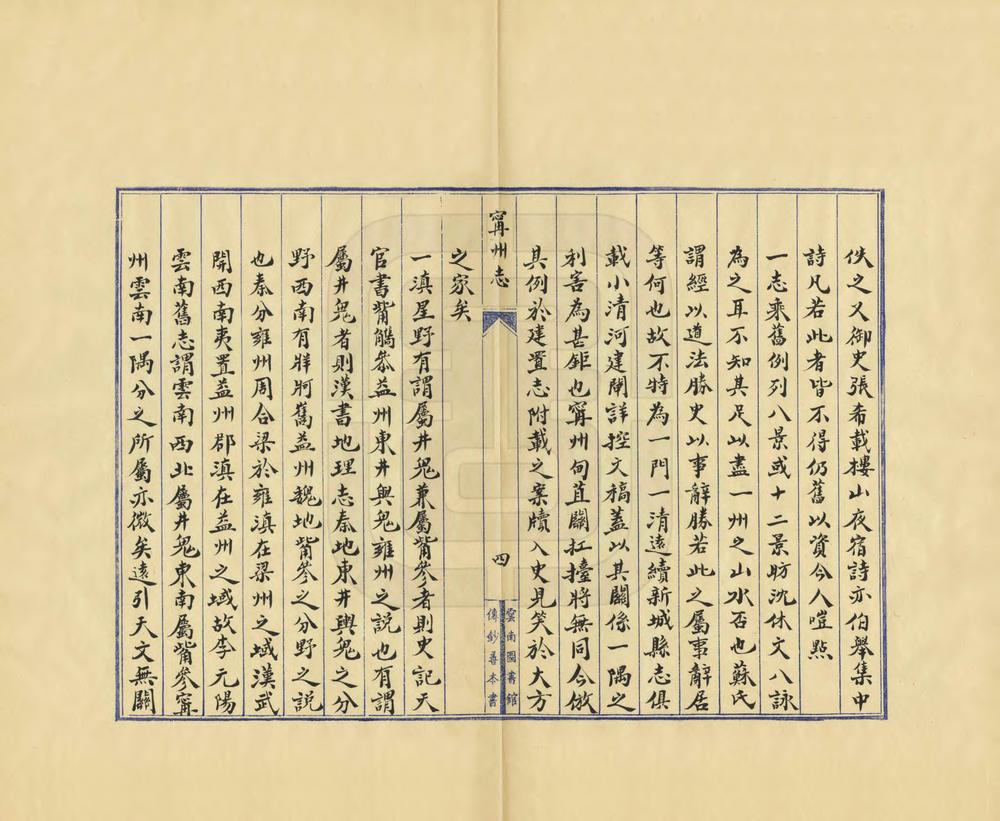 佚之又御史張希載樓山夜宿詩亦伯舉集中
詩凡若此者皆不得仍舊以資令人噬點
一志乘舊例列八景或十二景昉沈休文八詠
為之耳不知其足以盡一州之山水否也蘇氏
謂經以道法勝史以事辭勝若此之屬事辭居
等何也故不特為一門一清遠續新城縣志俱
載小清河建閘詳控文稿蓋以其關係一隅之
利害為甚鉅也甯州甸苴關扛擡將無同今倣
其例於建置志附載之案牘入史見笑於大方
之家矣
甯州志
四
雲南圖書館
傳鈔善本書
一滇星野有謂屬井鬼兼屬觜參者則史記天
官書觜觿參益州東井輿鬼雍州之說也有謂
屬井鬼者則漢書地理志秦地東井輿鬼之分
野西南有牂牁嶲益州魏地觜參之分野之說
也秦分雍州周合梁於雍滇在梁州之域漢武
開西南夷置益州郡滇在益州之域故李元陽
雲南舊志謂雲南西北屬井鬼東南屬觜參甯
州雲南一隅分之所屬亦微矣遠引天文無關